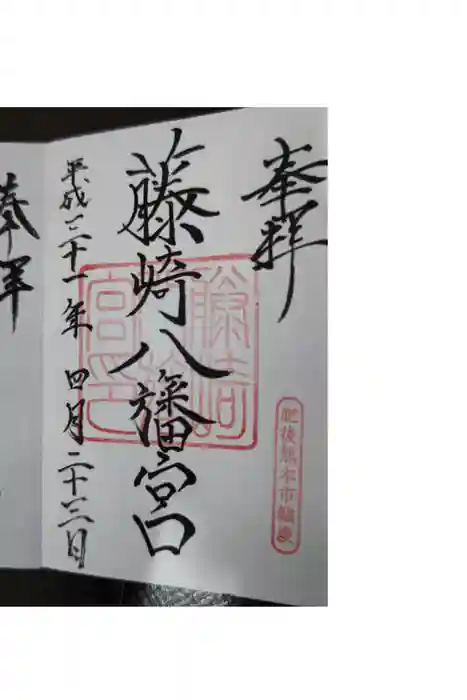 奉拝
肥後熊本市鎮座
藤崎八旛宮
藤崎
宮印
平成三十一年 四月二十三日
奉拝